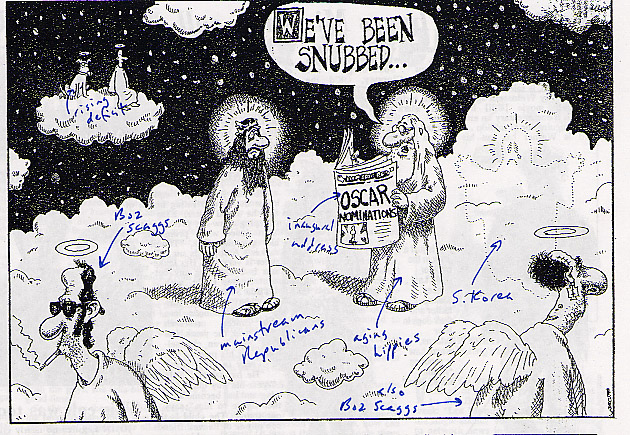 WE'VE BEEN
SNUBBED...
rising
deficit
OSCAR
NOMINATIONS
Boz
Scaggs
inaugural
address
S. Korea
mainstream
Republicans
aging
hippies
also
Boz Scaggs